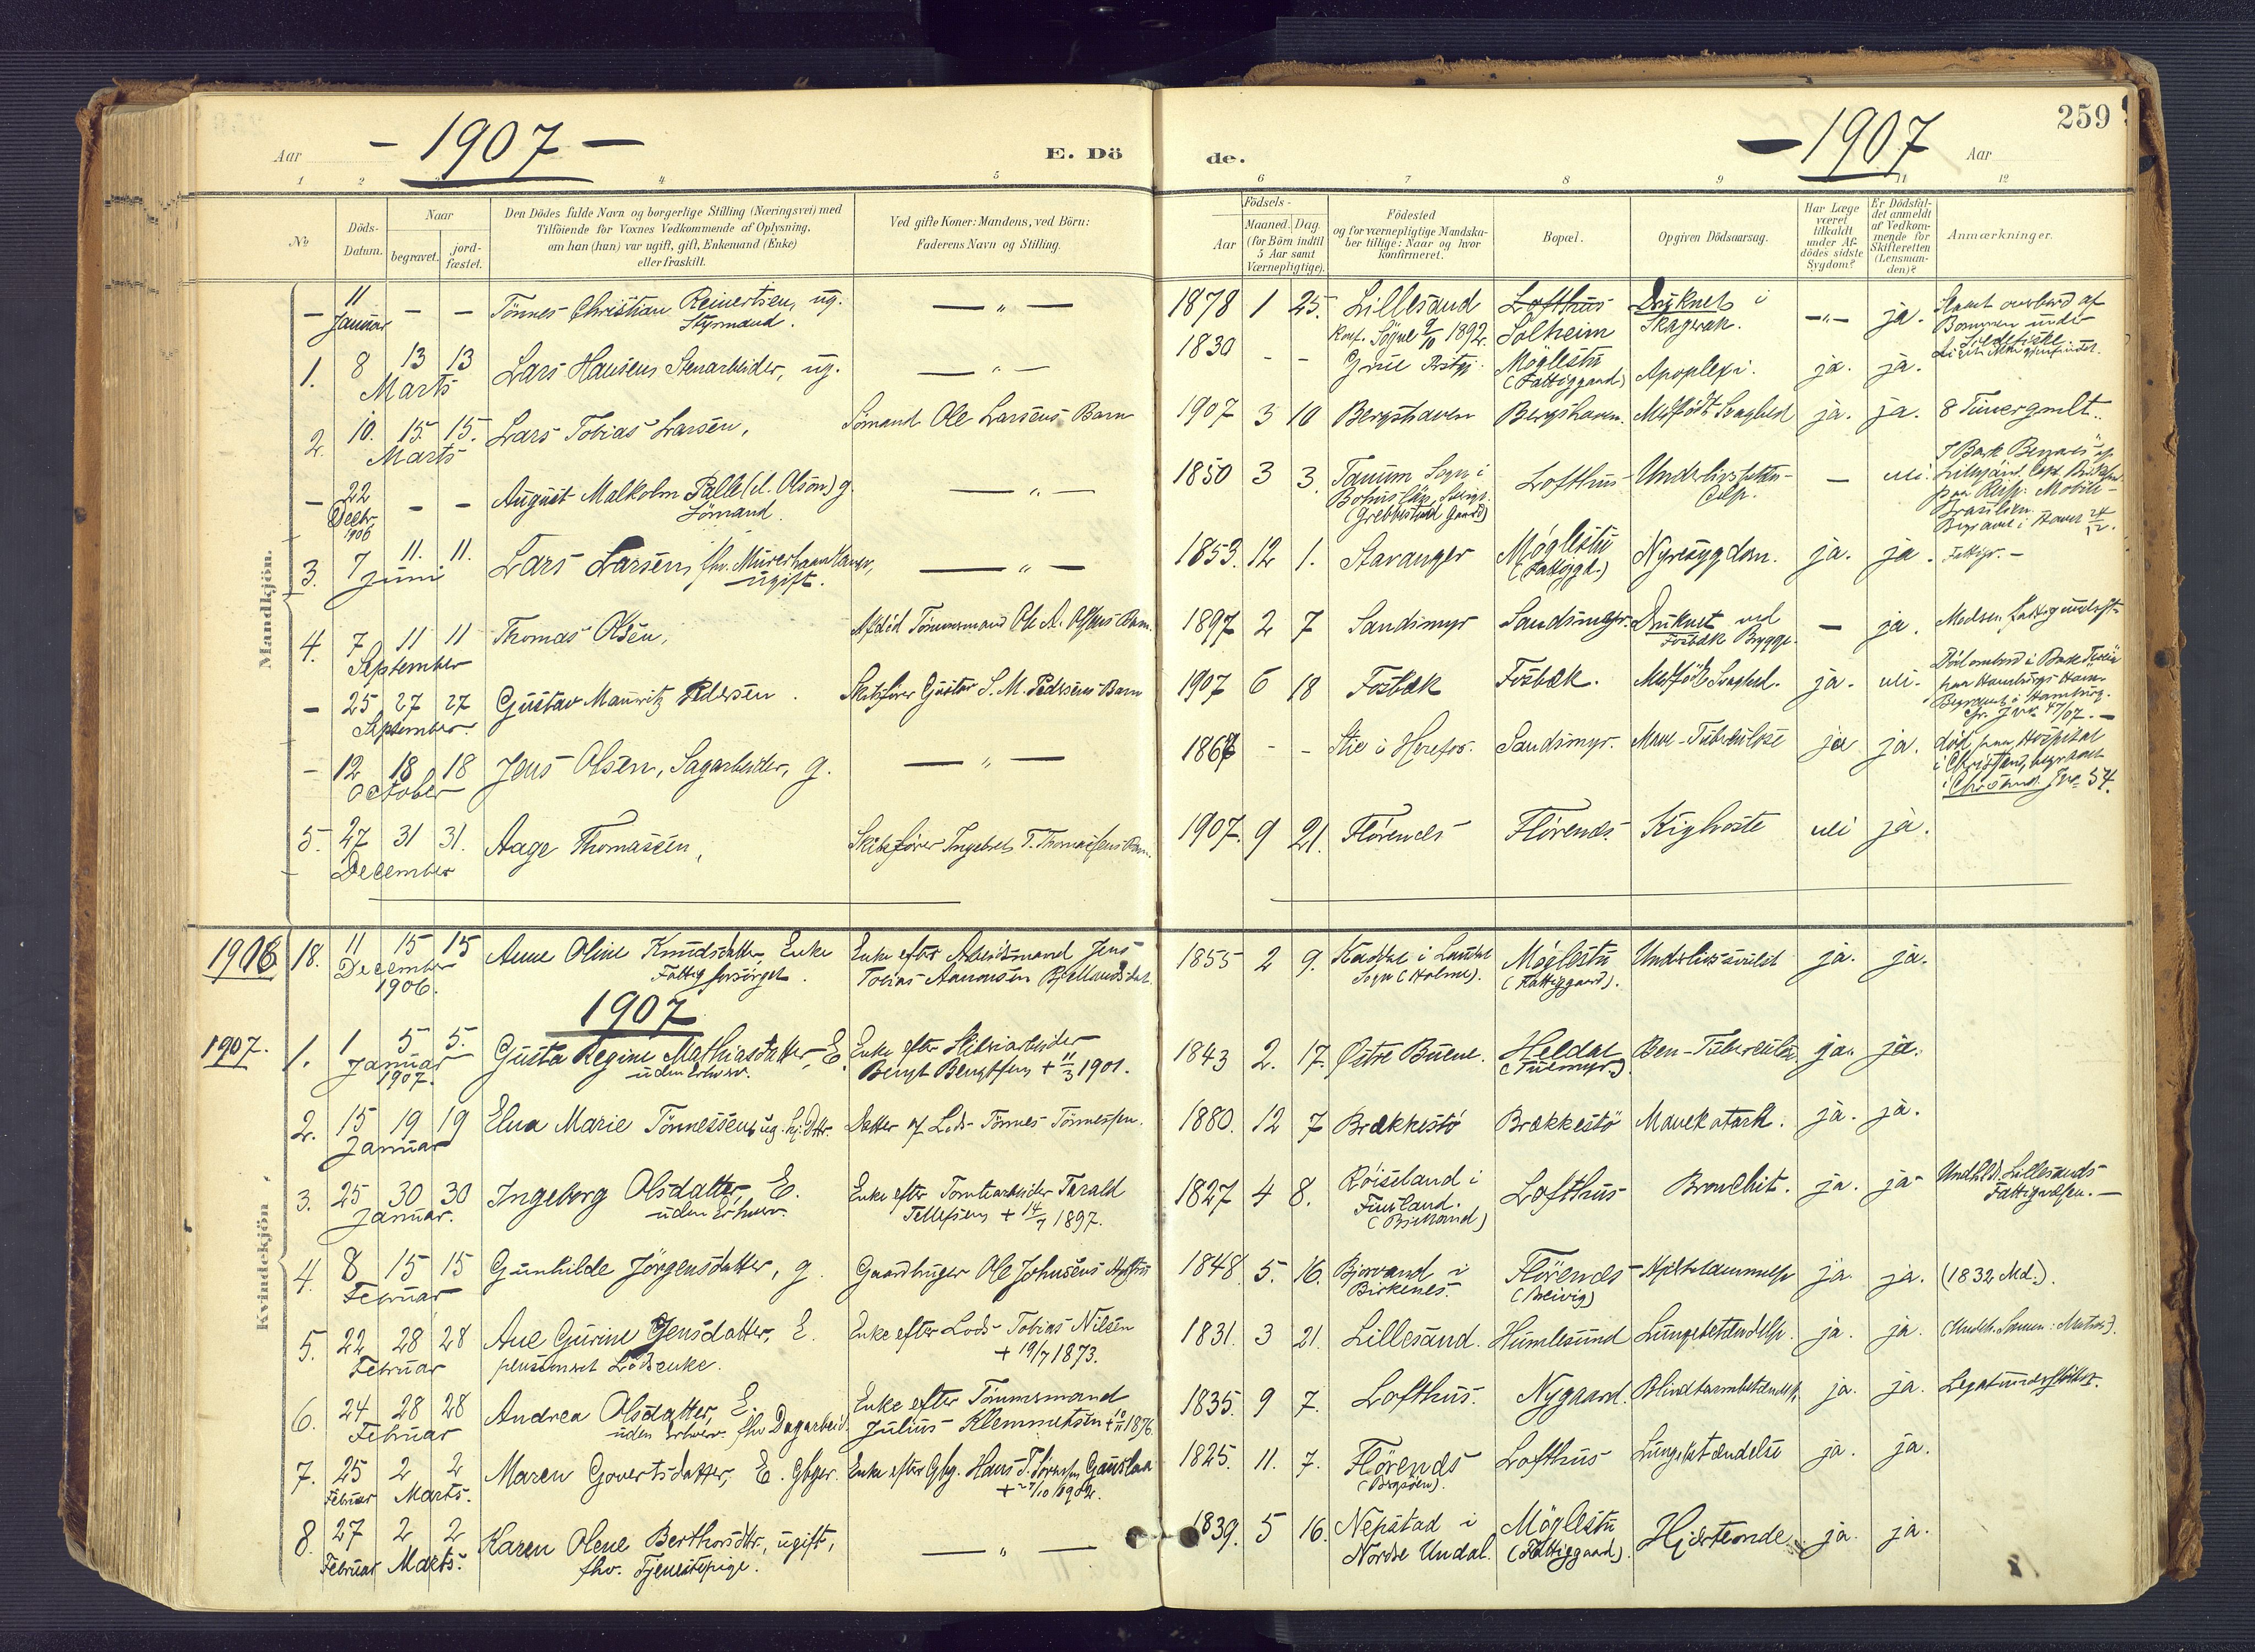 259
Aar - 1907 -
E. Dö
de.
- 1907 Aar
1 2 3 4 5
6 7 8 9 11 12
No
Döds-Datum.
Naar
begravet.
jord-fæstet.
Den Dödes fulde Navn og borgerlige Stilling (Næringsvei) med
Tilföiende for Voxnes Vedkommende af Oplysning,
om han (hun) var ugift, gift, Enkemand (Enke)
eller fraskilt.
Ved gifte Koner: Mandens, ved Börn:
Faderens Navn og Stilling.
Födsels-
Aar
Maaned. Dag.
(for Börn indtil
5 Aar samt
Værnepligtige).
Födested
og for værnepligtige Mandska-
ber tillige: Naar og hvor
konfirmeret.
Bopæl.
Opgiven Dödsaarsag.
Har Læge
været
tilkaldt
under Af-
dödes sidste
Sygdom?
Er Dödsfal-
det anmeldt
af Vedkom-
mende for
Skifteretten
(Lensman-
den)?
Anmærkninger.
Mandkjön.
- 11 Januar - - Tönnes Christian Reinertsen, ug. Styrmand. — " — 1878 1 25. Lillesand Konf. Sögne 9/10 1892. Lofthus Solheim Druknet i Skagerak. -"- ja. overbord af Bommen under Sildefiske
1. 8 13 13 Marts Lars Hansen, Stenarbeider, ug. — " — 1830 - - Grue Möglestu (Fattiggaard) Apoplexi. ja. ja.
2. 10. 15. 15. Marts Lars Tobias Larsen, Sömand Ole Larsens Barn 1907 3 10 Bergshaven Bergshaven. Medfödt Svaghed ja. ja. 8 Timer gmlt.
- 22 Decbr. 1906 - - August Malkolm Palle (el. Olson) g. Sömand. — " — 1850 3 3. Tanum Sogn i (Grebbestad) Lofthus - nei. Brasilien. Begravet i Havet 24/12.
3. 7 11. 11. Juni Lars Larsen, fhv. ugift. — " — 1853. 12 1. Stavanger Möglestu (Fattiggd.) Nyresygdom. ja. ja.
4. 7 11 11 September Thomas Olsen, Afdöd Tömmermand Ole A. Olsens Barn. 1897 2 7 Sandsmyr Sandsmyr. Druknet ved Fosbæk Brygge. - ja.
- 25 27 27 September. Gustav Mauritz Pedersen. Skibsförer Gustav S. M. Pedersens Barn 1907 6 18 Fosbæk Fosbæk. Medfödt Svaghed. ja. nei. paa Hamburgs Havn. Begravet i Hamburg. 47/07. -
- 12 18 18 October Jens Olsen, Sagarbeider, g. — " — 1867 - - Stie i Herefos. Sandsmyr. Mave-Tuberkulose ja ja. död paa Hospital i Christsand, begravet i Christsand. 54.
5. 27 31 31. December Aage Thomassen, Skibsförer Ingebret T. Thomassens Barn. 1907. 9 21. Flörenæs Flörenæs. Kighoste nei ja.
Kvindekjön.
1906 18. 11 15 15 December 1906. Anne Oline Knudsdatter, Enke Fattigforsörget. Enke efter Arbeidsmand Jens Tobias Aanonsen 1855 2 9. Sogn (Holme). Möglestu (Fattiggaard). ja. ja.
1907
1907. 1. 1 5 5. Januar 1907. Gusta Regine Mathiasdatter, E. uden Erhverv. Enke efter Bengt Bengtsen + 11/3 1901. 1843 2. 17. Östre Buene. Heldal Ben-Tuberculose. ja. ja.
2. 15 19 19 Januar Elna Marie Tönnessen, ug. hj. Dttr. Datter af Lods Tönnes Tönnessen. 1880. 12 7 Brækkestö Brækkestö Mavekatarh. ja. ja.
3. 25 30 30 Januar. Ingeborg Olsdatter, E. uden Erhverv. Enke efter Tomtearbeider Tarald Tellefsen + 14/7 1897. 1827 4 8. Röiseland i Finsland. (Bjelland) Lofthus Bronchit. ja. ja. Undhldt. Lillesands Fattigvæsen. -
4. 8 15 15 Februar Gunhilde Jörgensdatter, g. Gaardbruger Ole Johnsens Hustru 1848. 5. 16. Bjorvand i Birkenes. Flörenæs (Breivig) Hjertelammelse ja. ja. (1832 Md.).
5. 22 28 28 Februar Ane Gurine Jensdatter, E. pensioneret Lodsenke. Enke efter Lods Tobias Nilsen + 19/7 1873. 1831. 3 21. Lillesand. Humlesund Lungebetændelse. ja. ja.
6. 24 28 28 Februar Andrea Olsdatter, E. uden Erhverv. fhv. Dagarbeid. Enke efter Tömmermand Julius Klemmetsen 1876. 1835. 9 7. Lofthus. Nygaard. Blindtarmbetændelse. ja. ja. Legatunderstöttet.
7. 25 2 2 Februar Marts. Maren Govertsdatter, E. Gbger. Enke efter Gbg. Hans T. 1825. 11. 7. Flörenæs Lofthus Lungebetændelse ja. ja.
8. 27 2 2 Februar Marts. Karen Olene Berthorsdtr., ugift, fhv. Tjenestepige. — " — 1839. 5 16. Nepstad i Nordre Undal. Möglestu (Fattiggaard). Hjerteonde ja. ja.